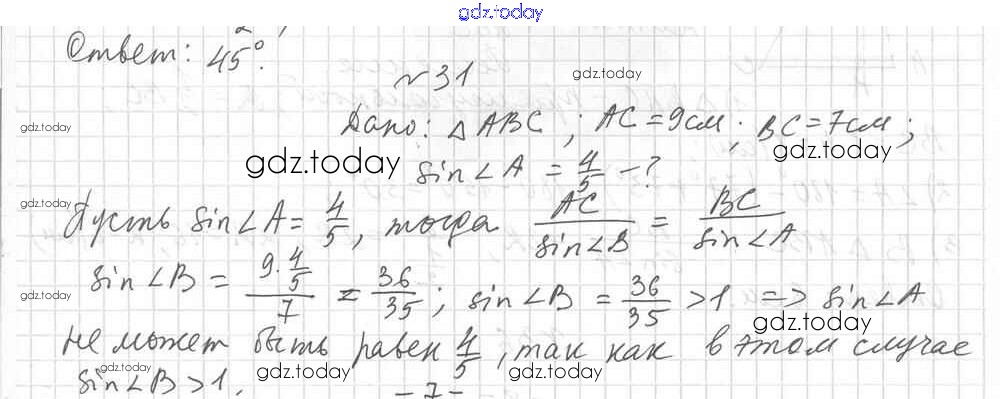 gdz.today
Ответ: 45°.
№31
gdz.today
gdz.today
Дано: △ABC; AC = 9см; BC = 7см;
gdz.today
gdz.today
sin∠A = 4/5 – ?
Пусть sin∠A = 4/5, тогда AC/sin∠B = BC/sin∠A
sin∠B = (9·4/5)/7 = 36/35; sin∠B = 36/35 > 1 => sin∠A
gdz.today
gdz.today
не может быть равен 4/5, так как в этом случае
sin∠B > 1.
gdz.today
gdz.today
gdz.today
gdz.today
– 7 –